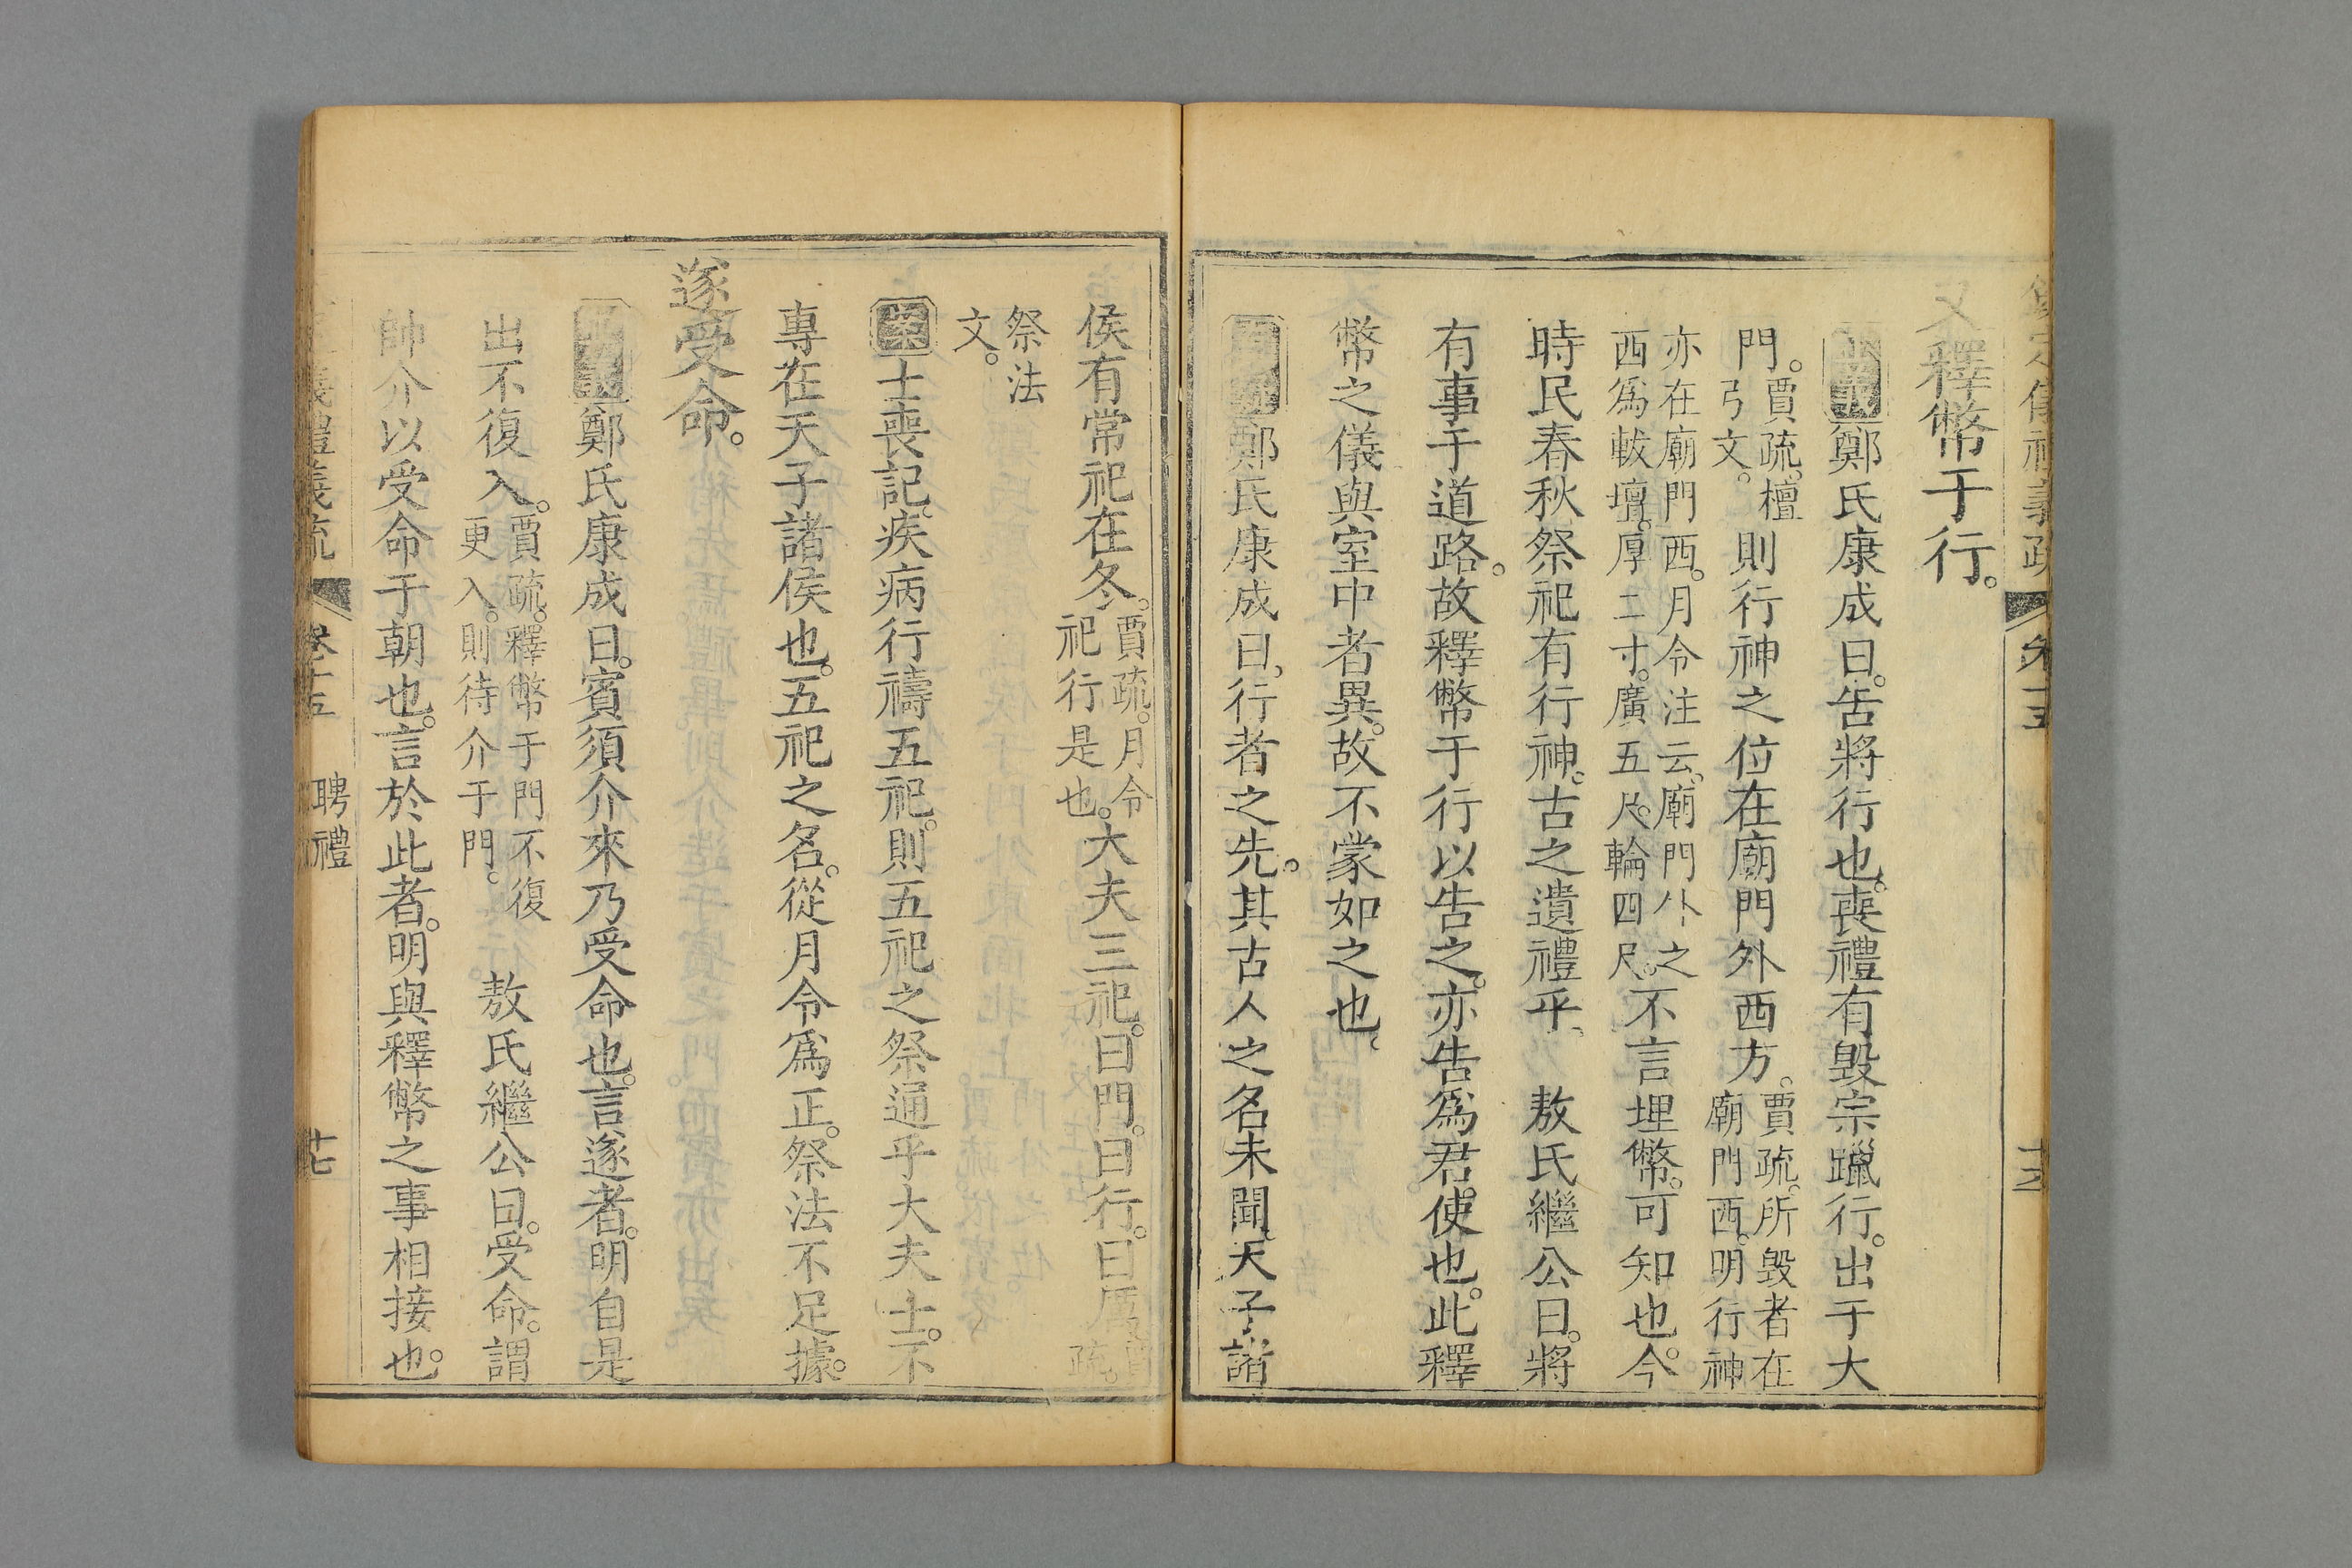 又釋幣于行。
鄭氏康成曰。告將行也。喪禮有毀宗躐行。出于大
門。賈疏。檀弓文。則行神之位在廟門外西方。賈疏。所毀者在廟門西。明行神
亦在廟門西。月令注云。廟門外之西爲軷壇。厚二寸。廣五尺。輪四尺。不言埋幣。可知也。今
時民春秋祭祀有行神。古之遺禮乎。 敖氏繼公曰。將
有事于道路。故釋幣于行以告之。亦告爲君使也。此釋
幣之儀與室中者異。故不蒙如之也。
鄭氏康成曰。行者之先。其古人之名未聞。天子諸
侯有常祀在冬。賈疏。月令祀行是也。大夫三祀。曰門。曰行。曰厲。賈疏。
祭法文。
案士喪記。疾病行禱五祀。則五祀之祭通乎大夫士。不
專在天子諸侯也。五祀之名。從月令爲正。祭法不足據。
遂受命。
鄭氏康成曰。賓須介來乃受命也。言遂者。明自是
出不復入。賈疏。釋幣于門不復更入。則待介于門。 敖氏繼公曰。受命。謂
帥介以受命于朝也。言於此者。明與釋幣之事相接也。
儀禮義疏 卷十五 聘禮 十七